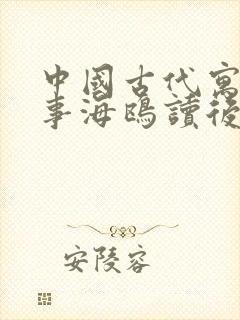 中國古代寓
事海鷗讀後
安陵容